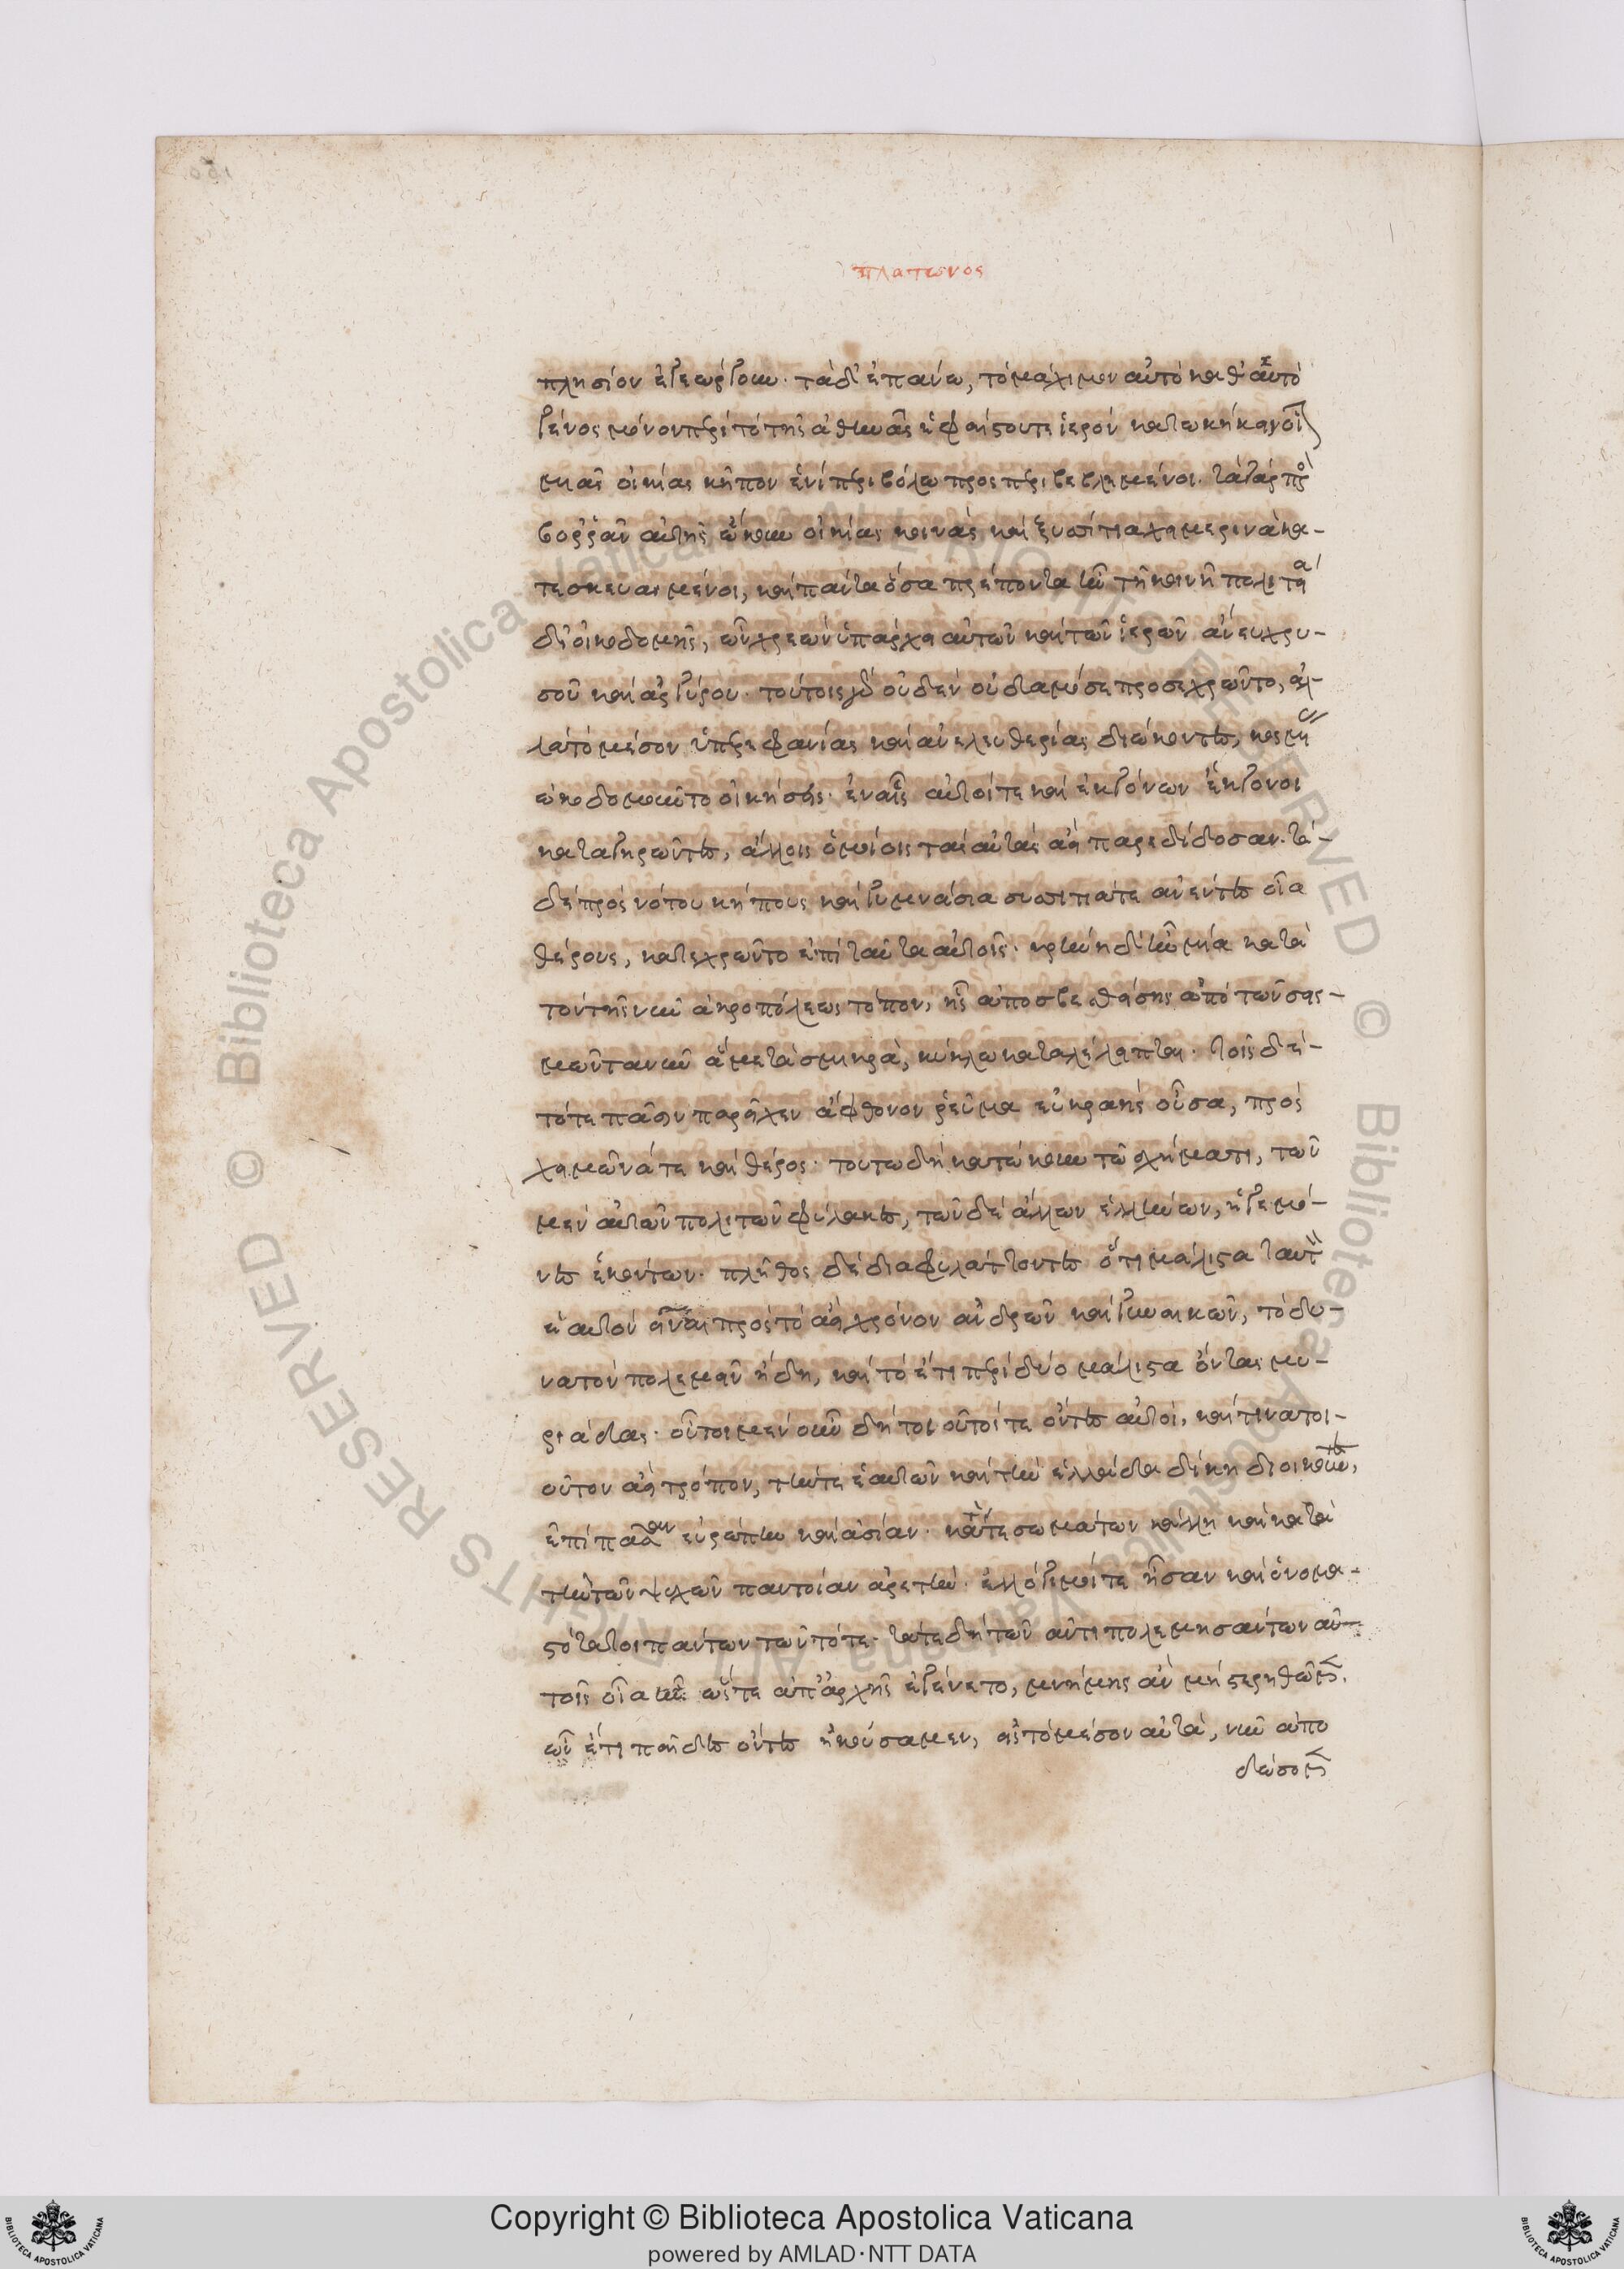 πλατωνος
πλησίον ἐγεώργουν· τὰ δ' ἐπάνω, τὸ μάχιμον αὐτὸ καθ' αὑτὸ
γένος μόνον περὶ τὸ τῆς ἀθηνᾶς ἡφαίστου τε ἱερὸν κατωκήκει οἷον
μιᾶς οἰκίας κῆπον ἑνὶ περιβόλω προσπεριβεβλημένοι. τὰ γὰρ πρὸς
βορρᾶν αὐτῆς ὤκουν οἰκίας κοινὰς καὶ ξυσίτια χειμερινὰ κα-
τασκευασμένοι, καὶ πάντα ὅσα πρέποντα ἦν τῆ κοινῆ πολιτεία
δι' οἰκοδομῆς, ὧν χρεὼν ὑπάρχειν αὐτῶν καὶ τῶν ἱερῶν ἄνευ χρυ-
σοῦ καὶ ἀργύρου· τούτοις γὰρ οὐδὲν οὐδαμόσε προσεχρῶντο, ἀλ-
λὰ τὸ μέσον ὑπερηφανίας καὶ ἀνελευθερίας διώκοντες, κοσμίας
ᾠκοδομοῦντο οἰκήσεις· ἐν αἷς αὐτοί τε καὶ ἐκγόνων ἔκγονοι
καταγηρῶντες, ἄλλοις ὁμοίοις τὰς αὐτὰς ἀεὶ παρεδίδοσαν. τὰ
δὲ πρὸς νότου κήπους καὶ γυμνάσια συσσίτιά τε ἀνέντες οἷα
θέρους, κατεχρῶντο ἐπὶ ταῦτα αὐτοῖς· κρήνη δὲ ἦν μία κατὰ
τὸν τῆς νῦν ἀκροπόλεως τόπον, ἧς ἀποσβεσθείσης ὑπὸ τῶν σεισ-
μῶν τὰ νῦν νάματα σμικρὰ, κύκλω καταλέλειπται· τοῖς δὲ
τότε πᾶσιν παρεῖχεν ἄφθονον ῥεῦμα εὐκρας οὖσα, πρὸς
χειμῶνά τε καὶ θέρος· τούτω δὴ κατώκουν τῶ σχήματι, τῶν
μὲν αὐτῶν πολιτῶν φύλακες, τῶν δὲ ἄλλων ἑλλήνων, ἡγεμό-
νες ἑκόντων· πλῆθος δὲ διαφυλάττοντες ὅτι μάλιστα ταυτὸν
ἑαυτὸν εἶναι πρὸς τὸ ἀεὶ χρόνον ἀνδρῶν καὶ γυναικῶν, τὸ δυ-
νατὸν πολεμεῖν ἤδη, καὶ τὸ ἔτι περὶ δύο μάλιστα ὄντας μυ-
ριάδας· οὗτοι μὲν οὖν δὴ τοι οὗτοί τε ὄντες αὐτοὶ, καί τινα τοι-
οῦτον ἀεὶ τρόπον, τήν τε ἑαυτῶν καὶ τὴν ἑλλάδα δίκη διοικοῦντες,
ἐπὶ πᾶσαν εὐρώπην καὶ ἀσίαν· κατά τε σωμάτων κάλλη καὶ κατὰ
τὴν τῶν ψυχῶν παντοίαν ἀρετὴν· ἐλλόγιμοί τε ἦσαν καὶ ὀνομα-
στότατοι πάντων τῶν τότε· τὰ τε δὴ τῶν ἀντιπολεμησάντων αὐ-
τοῖς οἷα ἦν ὥς τε ἀπ' ἀρχῆς ἐγένετο, μνήμης ἂν μὴ στερηθῶμεν.
ὧν ἔτι παῖδες ὄντες ἠκούσαμεν, εἰς τὸ μέσον αὐτὰ, νῦν ἀπο
δώσομεν